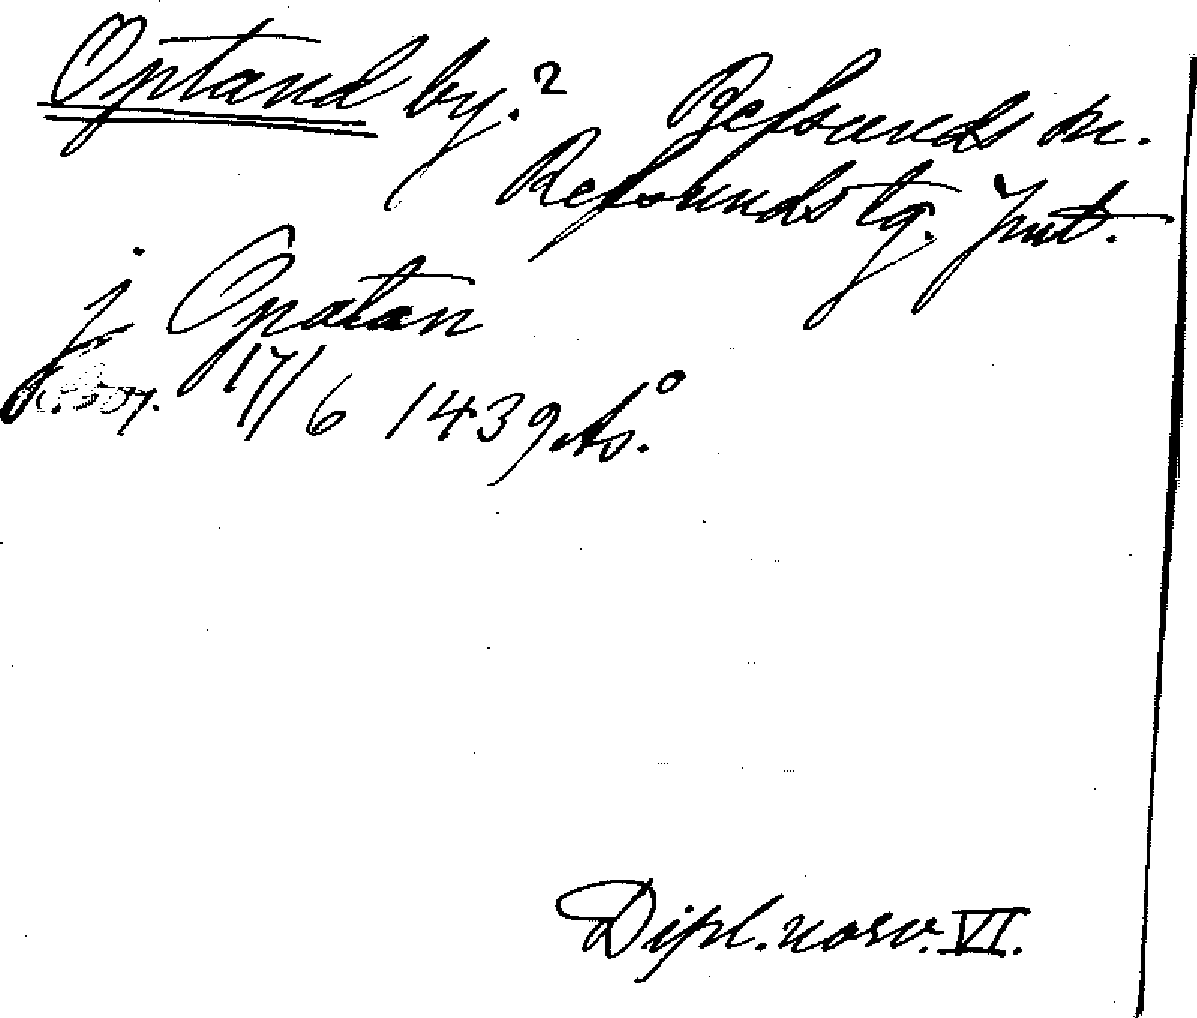 Optand by.² Refsunds sn.
Refsunds tg. Jmt.
j Opatan
17/6 1439 Ao.
Dipl. norv. VI.